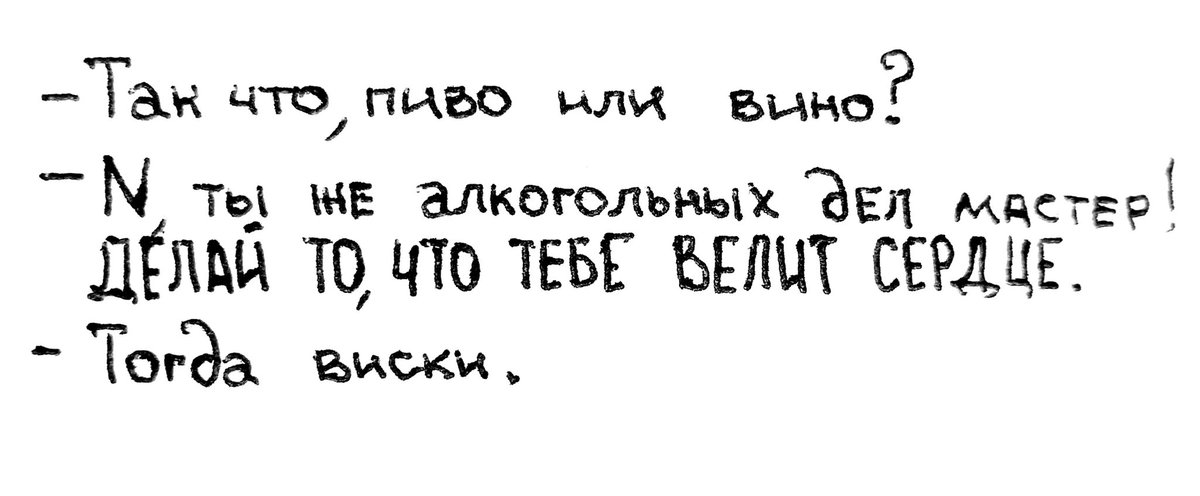 - Так что, пиво или вино?
- N, ты же алкогольных дел мастер!
ДЕЛАЙ ТО, ЧТО ТЕБЕ ВЕЛИТ СЕРДЦЕ.
- Тогда виски.